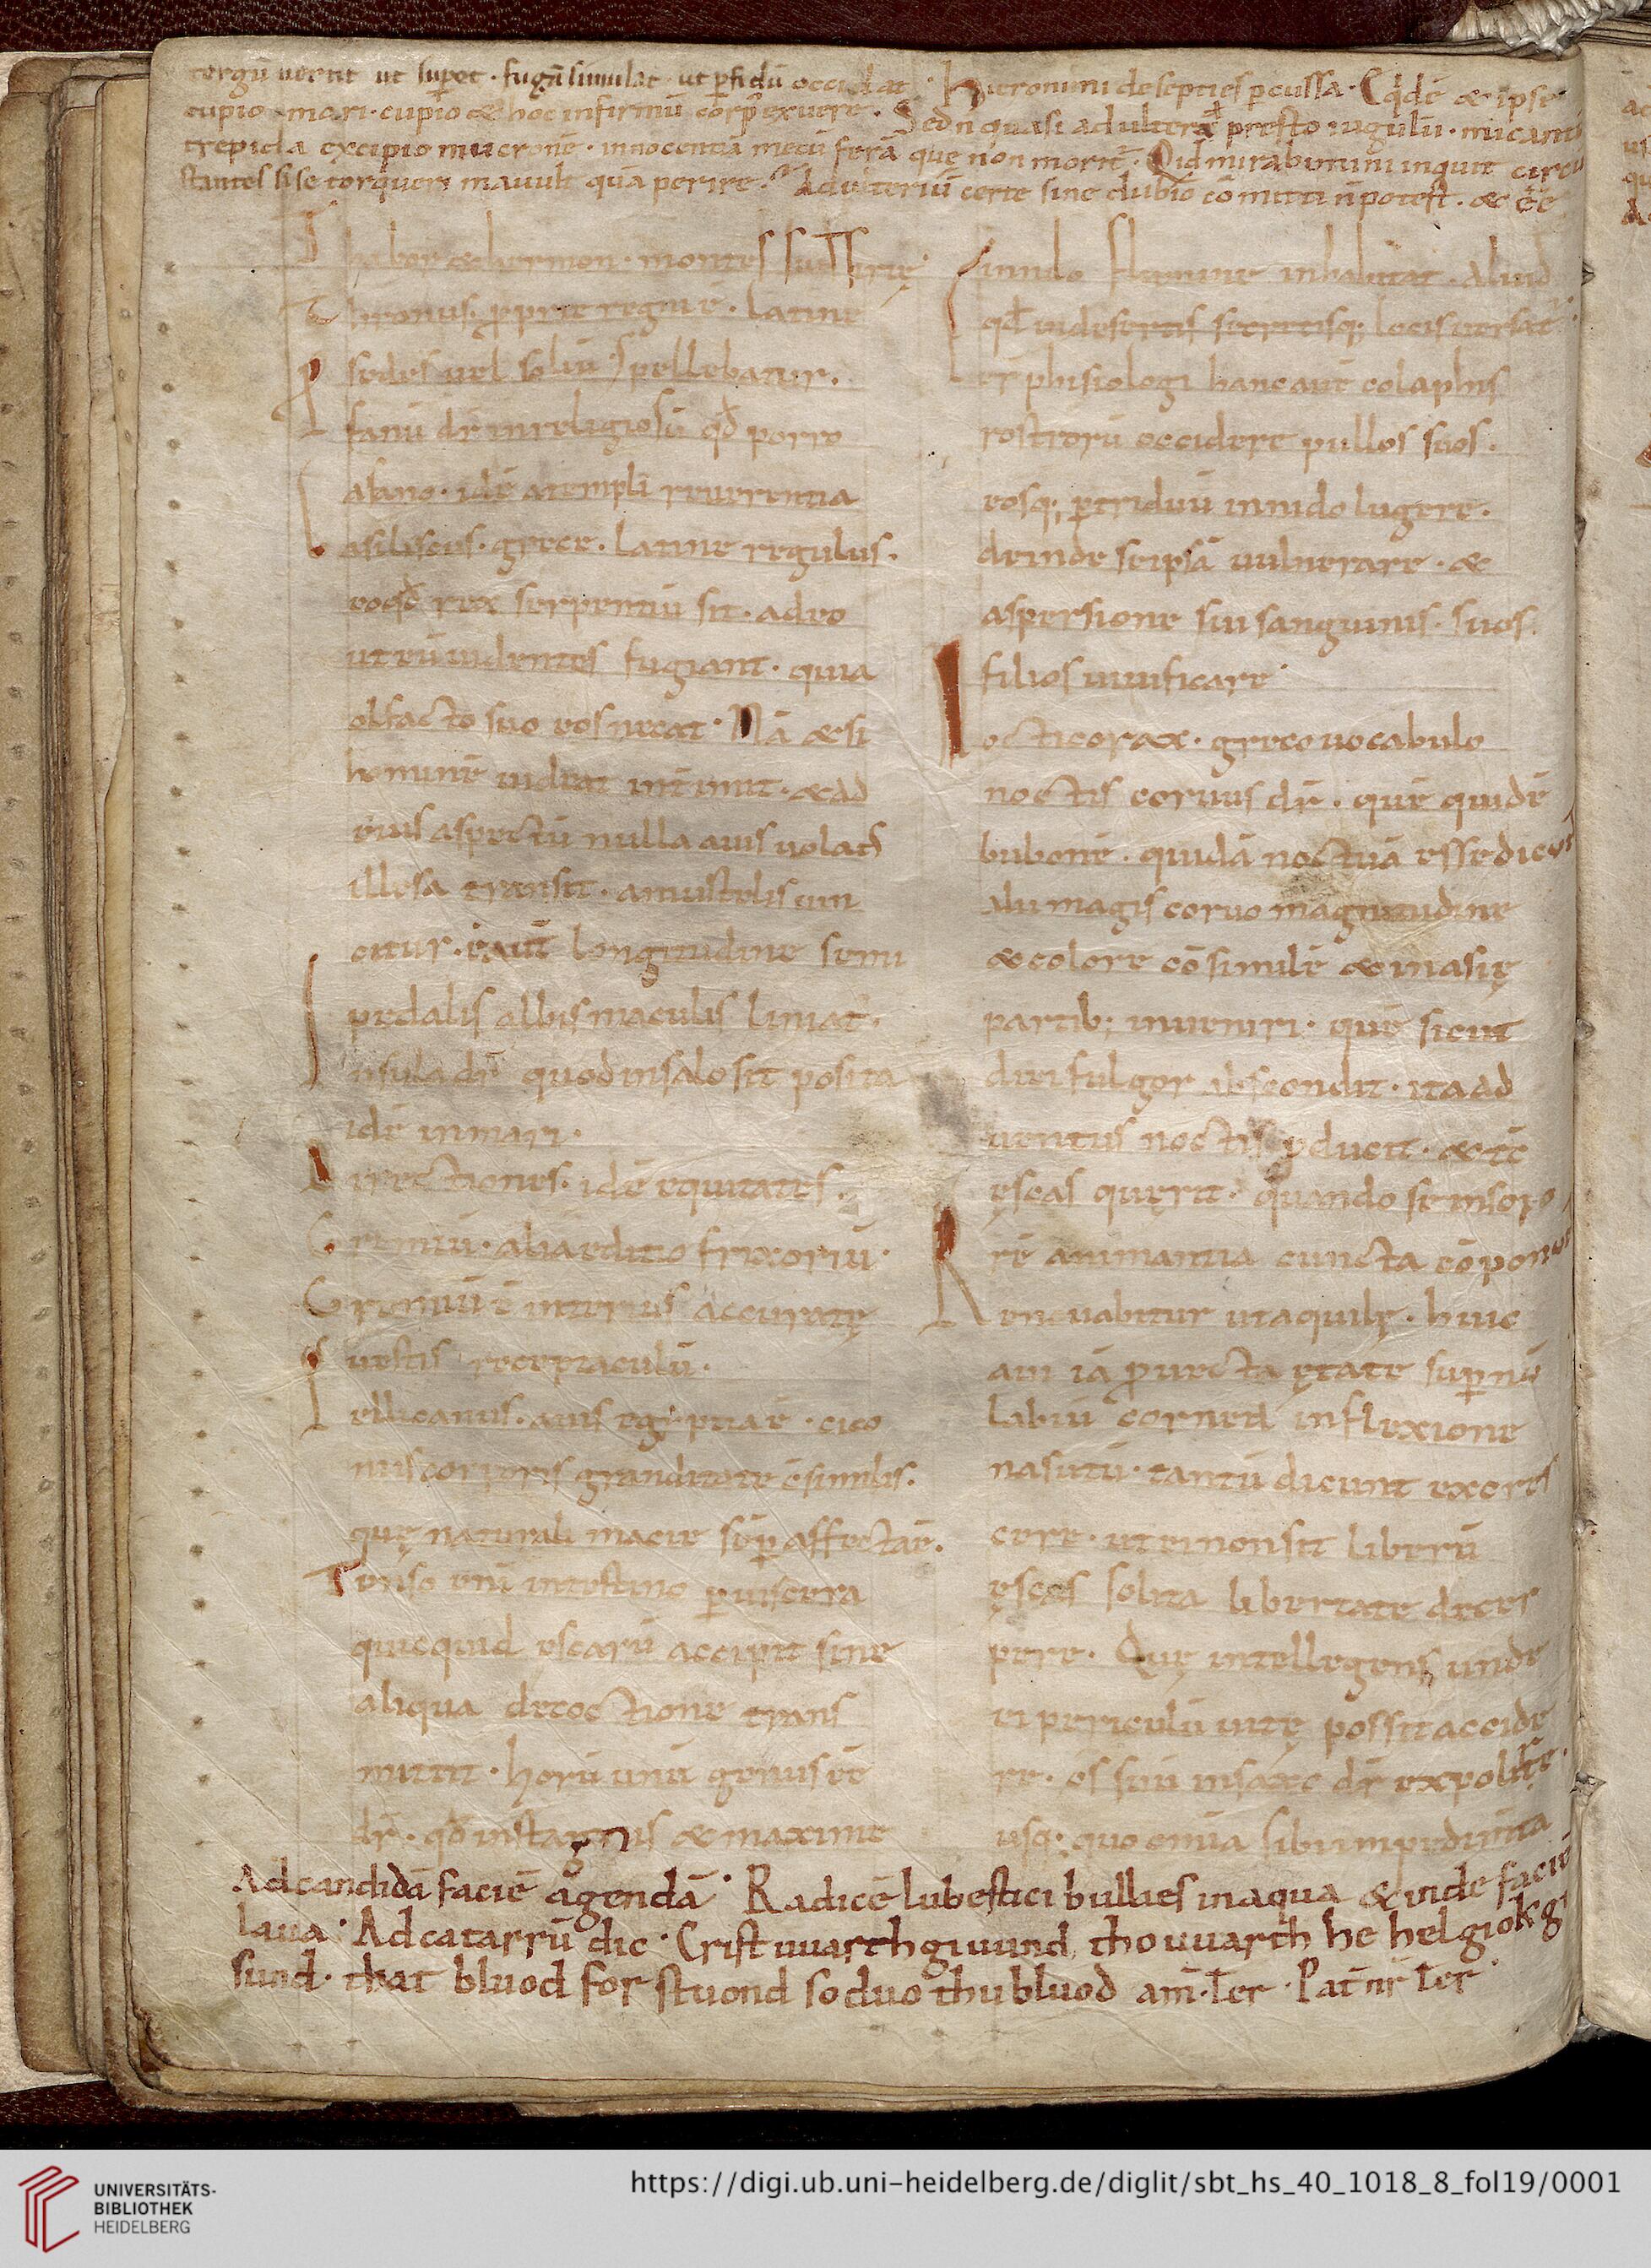 tergū uertit ut supet · fugā simulat · ut pfidū occidat · Hieronimi de septies pcussa · Cqdē & ipse
cupio mori · cupio & hoc infirmū corp exuere · Sed n quasi adultera · presto iugulū · micantē
trepida excipio mucronē · innocentiā mecū ferā que non morit · Qid mirabimini inquit circū
stantes si se torqueri mauult quā perire · Adulteriū certe sine dubio cōmitti n potest · &
Thabor & hermon · montes sunt sirię ·
Thronus · pprie regni ē · latine
sedes uel soliū · pellebatur ·
fanū dr inreligiosū qd porro
afano · idē atempli reuerentia
asiliscus · grece · latine regulus ·
eoqd rex serpentiū sit · adeo
ut eū uidentes fugiant · quia
olfacto suo eos necat · Nā & si
hominē uideat intimit · & ad
eius aspectū nulla auis uolans
illesa transit · amustelis uin
citur · ē aut longitudine semi
pedalis albis maculis liniat ·
Insula dr quod in salo sit posita
idē in mari ·
Directiones · idē equitates ·
Gremiū · alia editio frixoriū ·
Gremiū ē interius accuratę
uestis receptaculū ·
Pellicanus · auis egiptia ē · cico
niis corporis granditate ē similis ·
quę naturali macie sēp affecta ē ·
Tenso enī intestino p uiscera
quicquid escarū accipit sine
aliqua decoctione trans
mittit · horū unū genus ēē
dr · qd in stagnis & maxime
in nilo flumine inhabitat · Aliud
qd in desertis secretisq; locis uersat ·
Fer phisiologi hanc auē colaphis
rostrorū occidere pullos suos ·
eosq; p triduū in nido lugere ·
deinde seipsā uulnerare · &
aspersione sui sanguinis · suos
filios uiuificare ·
Nocticorax · greco uocabulo
noctis coruus dr · quē quidē
bubonē · quidā noctuā esse dicunt
alii magis coruo magnitudine
& colore cōsimilē & in asię
partib; inueniri · quē sicut
diei fulgor abscondit · ita ad
uentus noctis pducit · &
ęscas quęrit · quando se in sopo
rē animantia cuncta cōponunt
Renouabitur ut aquilę · huic
aui iā puecta ętate supnū
labiū corneā inflexione
nasutū · tantū dicunt excres
cere · ut ei non sit liberū
ęscas solita libertate decer
pere · Quę intellegens unde
ei periculū uitę possit accide
re · os suū in saxo dr expolire ·
usq; quo omia sibi impedimta
Ad candidā faciē agendā · Radicē lubestici bullies in aqua & inde faciē
laua · Ad catarrū dic · Crist uuarth giuund tho uuarth he hel gi ok gi
sund · that bluod forstuond so duo thu bluod am̄ · ter · Pat nr ter ·
UNIVERSITÄTS-
BIBLIOTHEK
HEIDELBERG
https://digi.ub.uni-heidelberg.de/diglit/sbt_hs_40_1018_8_fol19/0001